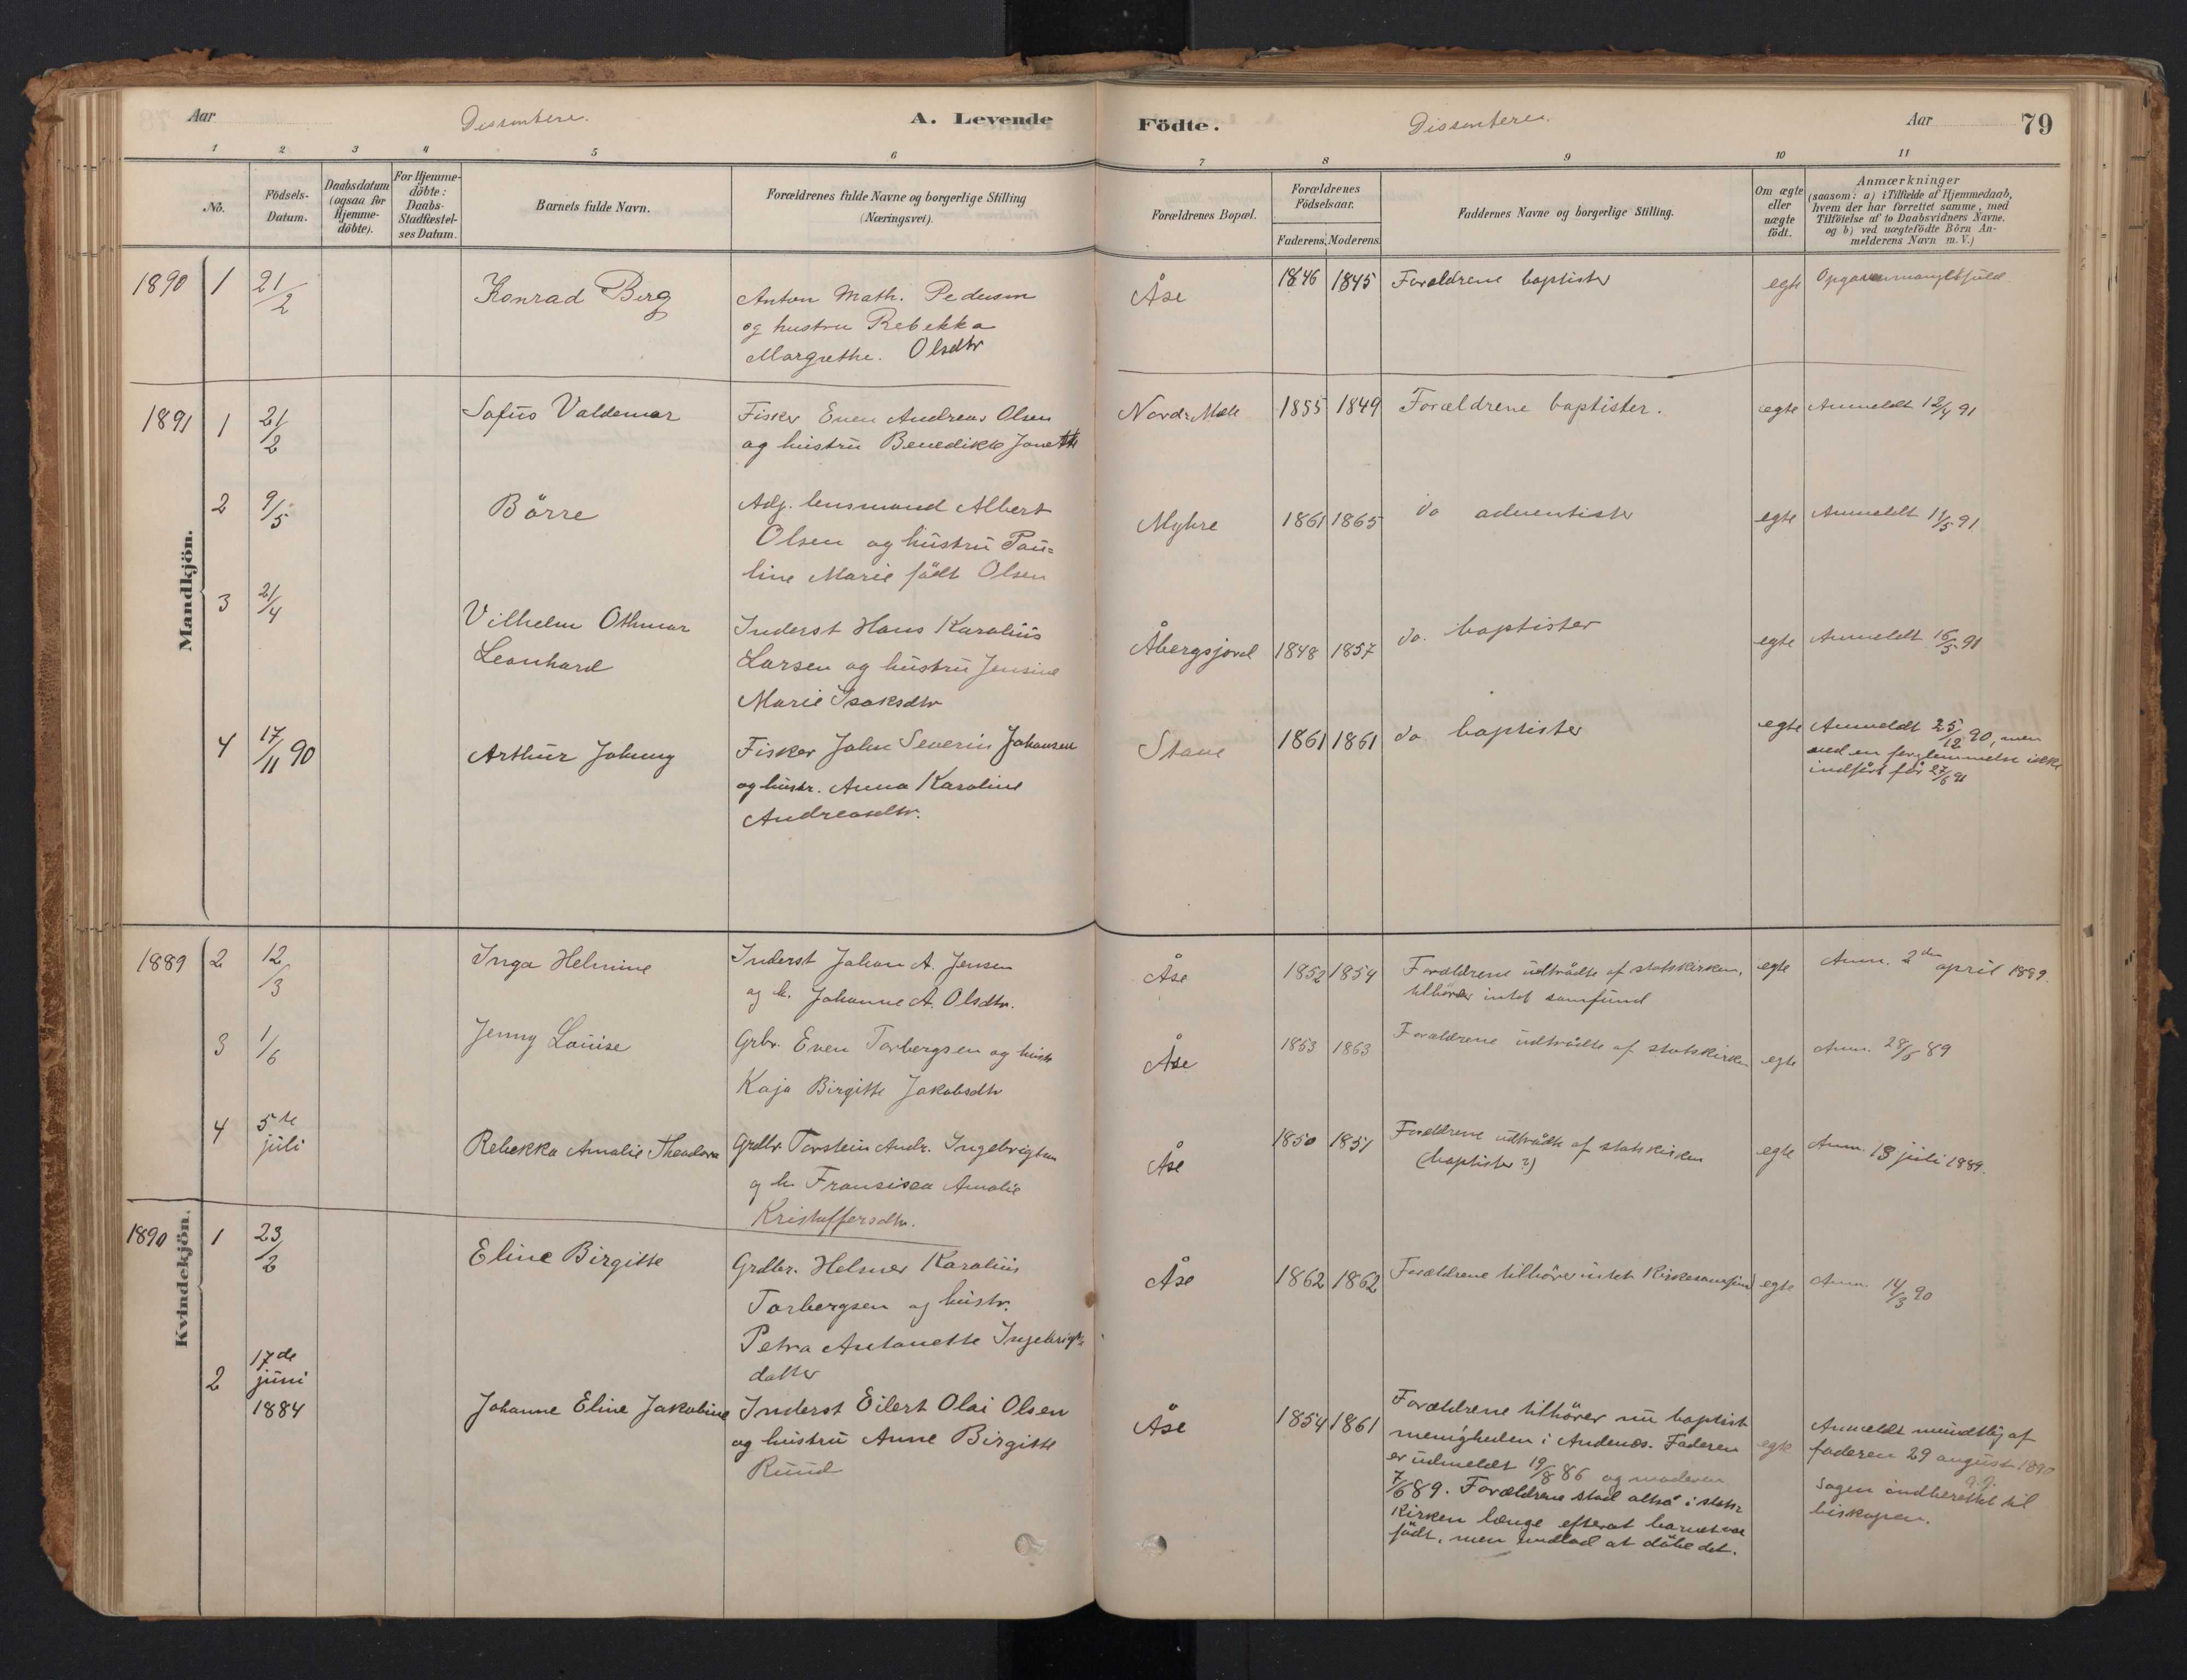 Aar
Dissentere.
A. Levende
Födte.
Dissentere.
Aar
79
1 2 3 4 5 6 7 8 9 10 11
No.
Födsels-Datum.
Daabsdatum (ogsaa for Hjemme-döbte).
For Hjemme-döbte: Daabs-Stadfæstel-ses Datum.
Barnets fulde Navn.
Forældrenes fulde Navne og borgerlige Stilling (Næringsvei).
Forældrenes Bopæl.
Forældrenes Födselsaar.
Faderens. Moderens.
Faddernes Navne og borgerlige Stilling.
Om ægte eller uægte födt.
Anmærkninger
(saasom: a) i Tilfælde af Hjemmedaab,
hvem der har forrettet samme, med
Tilföielse af to Daabsvidners Navne.
og b) ved uægtefödte Börn An-
melderens Navn m. V.)
Mandkjön.
1890 1 21/2 Konrad Berg
Anton Math. Pedersen
og hustru Rebekka
Margrethe. Olsdtr
Åse 1846 1845 Forældrene baptister egte
1891 1 21/2 Sofus Valdemar
Fisker Even Andreas Olsen
og hustru Benedikte Janette
Nord-Mele 1855 1849 Forældrene baptister. egte Anmeldt 12/4 91
2 9/5 Börre
Adj. lensmand Albert
Olsen og hustru Pau=
line Marie født Olsen
Myhre 1861 1865 do adventister egte Anmeldt 11/5 91
3 21/4 Vilhelm Othmar
Leonhard
Inderst Hans Karolius
Larsen og hustru Jensine
Marie Isaksdtr
Åbergsjord 1848 1857 do. baptister egte Anmeldt 16/5 91
4 17/11 90 Arthur Johnny
Fisker John Severin Johansen
og hustr. Anna Karoline
Andreasdtr.
Stave 1861 1861 do baptister egte Anmeldt 25/12 90, men
ved en forglemmelse ikke
indført før 27/6 91
Kvindekjön.
1889 2 12/3 Inga Helmine
Inderst Johan A. Jensen
og h. Johanne A. Olsdtr.
Åse 1852 1854 Forældrene udtrådte af statskirken,
tilhører intet samfund
egte Anm. 2den april 1889.
3 1/6 Jenny Louise
Grbr. Even Torbergsen og hustr
Kaja Birgitte Jakobsdtr
Åse 1853 1863 Forældrene udtrådte af statskirken egte Anm. 28/6 89
4 5te juli Rebekka Amalie Theodora
Grdbr. Torstein Andr. Ingebrigtsen
og h. Fransisca Amalie
Kristoffersdtr.
Åse 1850 1851 Forældrene udtrådte af statskirken
(baptister?)
egte Anm. 13 juli 1889.
1890 1 23/2 Eline Birgitte
Grdbr. Helmer Karolius
Torbergsen og hustr.
Petra Antonette Ingebrigts
datter
Åse 1862 1862 Forældrene tilhører intet Kirkesamfund egte Anm. 14/3 90
2 17de juni 1884 Johanne Eline Jakobine
Inderst Eilert Olai Olsen
og hustru Anne Birgitte
Ruud
Åse 1854 1861 Forældrene tilhører nu baptist
menigheden i Andenes. Faderen
er udmeldt 19/8 86 og moderen
7/6 89. Forældrene stod altså i stats=
Kirken længe efterat barnet var
født, men undlod at døbe det.
egte Anmeldt mundtlig af
faderen 29 august 1890
Sagen indberettet til
biskopen.